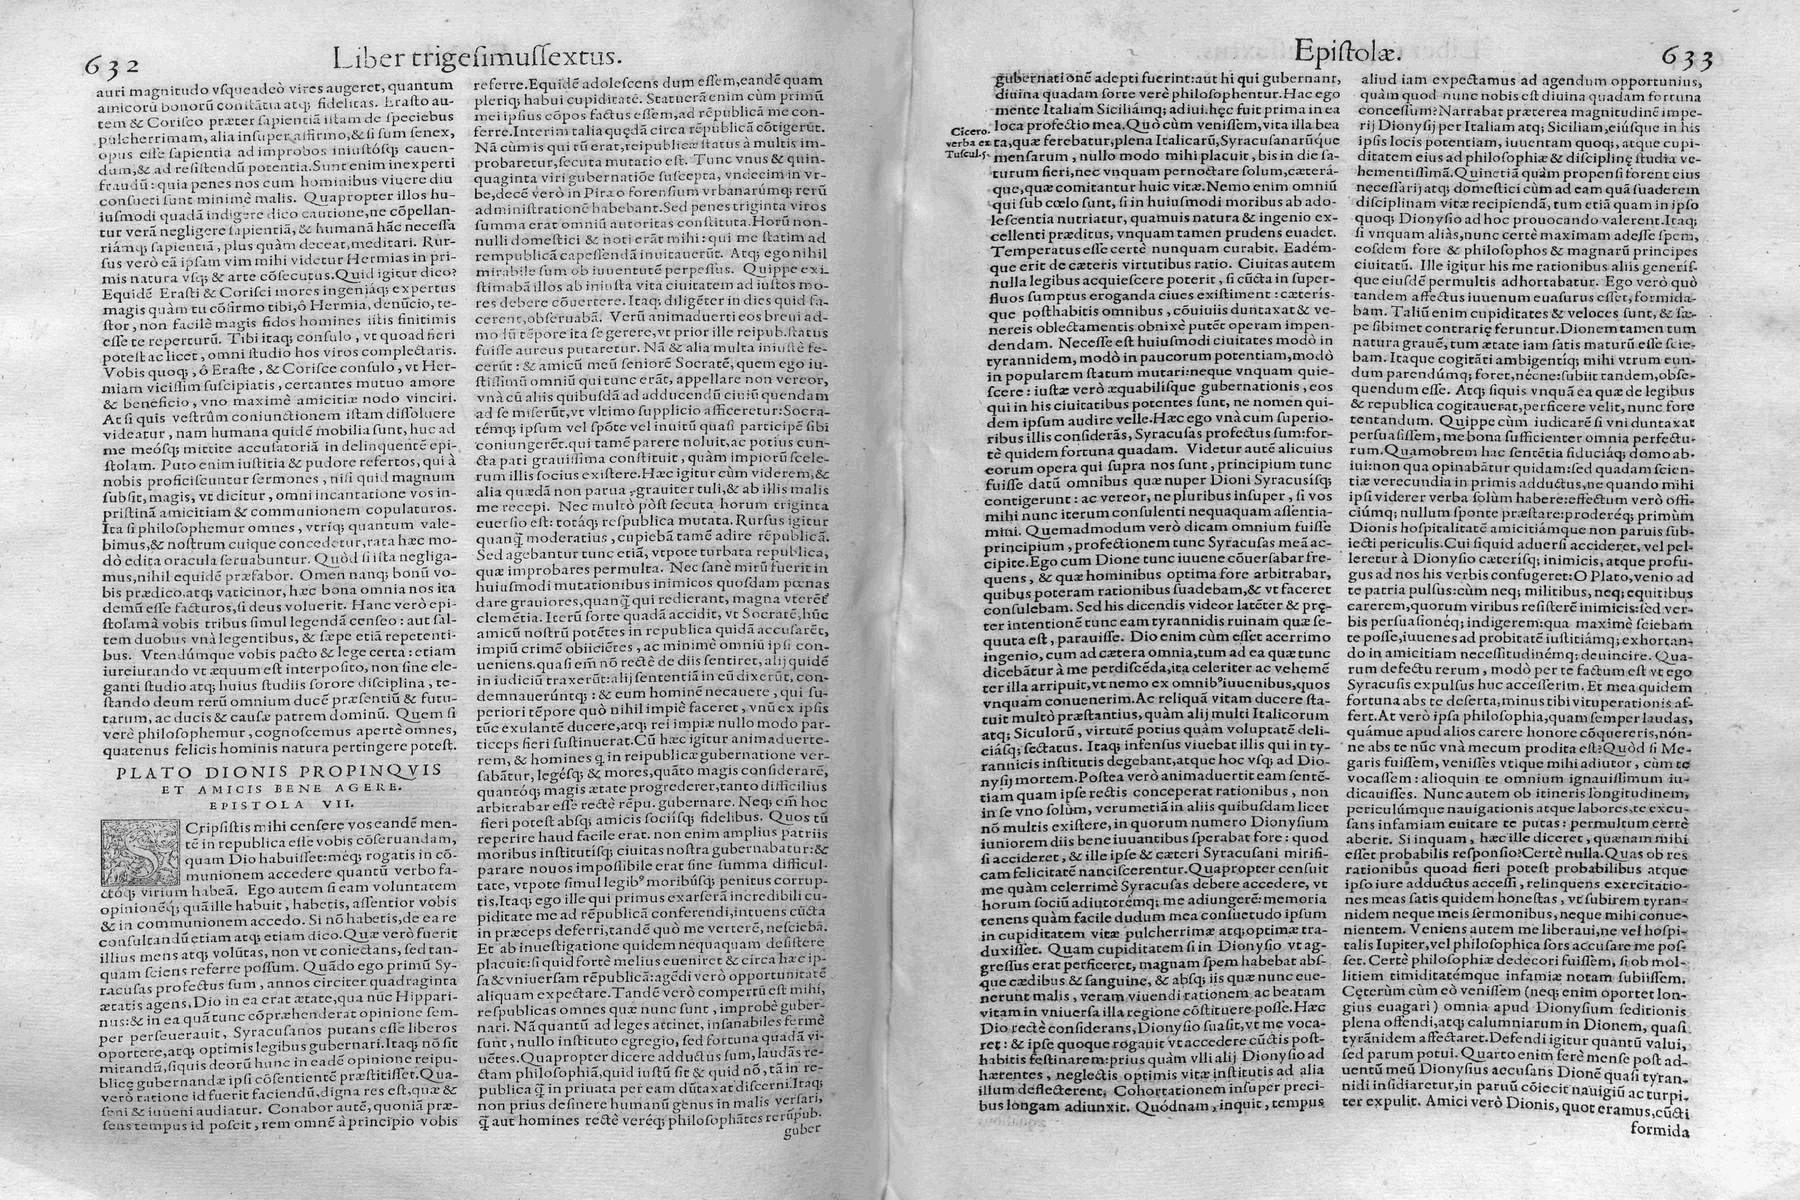 632 Liber trigesimussextus.
auri magnitudo vsqueadeò vires augeret, quantum
amicorū bonorū constātia atq; fidelitas. Erasto au-
tem & Corisco præter sapientiā istam de speciebus
pulcherrimam, alia insuper affirmo, & si sum senex,
opus esse sapientia ad improbos iniustósq; cauen-
dum, & ad resistendū potentia. Sunt enim inexperti
fraudū: quia penes nos cum hominibus viuere diu
consueti sunt minimè malis. Quapropter illos hu-
iusmodi quadā indigere dico cautione, ne cōpellan-
tur verā negligere sapientiā, & humanā hāc necessa
riámq; sapientiā, plus quàm deceat, meditari. Rur-
sus verò eā ipsam vim mihi videtur Hermias in pri-
mis natura vsq; & arte cōsecutus. Quid igitur dico?
Equidē Erasti & Corisci mores ingeniáq; expertus
magis quàm tu cōfirmo tibi, ô Hermia, denūcio, te-
stor, non facilè magis fidos homines istis finitimis
esse te reperturū. Tibi itaq; consulo, vt quoad fieri
potest ac licet, omni studio hos viros complectaris.
Vobis quoq;, ô Eraste, & Corisce consulo, vt Her-
miam vicissim suscipiatis, certantes mutuo amore
& beneficio, vno maximè amicitiæ nodo vinciri.
At si quis vestrūm coniunctionem istam dissoluere
videatur, nam humana quidē mobilia sunt, huc ad
me meósq; mittite accusatoriā in delinquentē epi-
stolam. Puto enim iustitia & pudore refertos, qui à
nobis proficiscuntur sermones, nisi quid magnum
subsit, magis, vt dicitur, omni incantatione vos in-
pristinā amicitiam & communionem copulaturos.
Ita si philosophemur omnes, vtriq; quantum vale-
bimus, & nostrum cuique concedetur, rata hæc mo-
dò edita oracula seruabuntur. Quòd si ista negliga-
mus, nihil equidē præfabor. Omen nanq; bonū vo-
bis prædico, atq; vaticinor, hæc bona omnia nos ita
demū esse facturos, si deus voluerit. Hanc verò epi-
stolamà vobis tribus simul legendā censeo: aut sal-
tem duobus vnà legentibus, & sæpe etiā repetenti-
bus. Vtendúmque vobis pacto & lege certa: etiam
iureiurando vt æquum est interposito, non sine ele-
ganti studio atq; huius studiis sorore disciplina, te-
stando deum rerū omnium ducē præsentiū & futu-
rarum, ac ducis & causæ patrem dominū. Quem si
verè philosophemur, cognoscemus apertè omnes,
quatenus felicis hominis natura pertingere potest.
PLATO DIONIS PROPINQVIS
ET AMICIS BENE AGERE.
EPISTOLA VII.
SCripsistis mihi censere vos eandē men-
tē in republica esse vobis cōseruandam,
quam Dio habuisset: méq; rogatis in cō-
munionem accedere quantū verbo fa-
ctóq; virium habeā. Ego autem si eam voluntatem
opinionéq; quā ille habuit, habetis, assentior vobis
& in communionem accedo. Si nō habetis, de ea re
consultandū etiam atq; etiam dico. Quæ verò fuerit
illius mens atq; volūtas, non vt coniectans, sed tan-
quam sciens referre possum. Quādo ego primū Sy-
racusas profectus sum, annos circiter quadraginta
ætatis agens, Dio in ea erat ætate, qua nūc Hippari-
nus: & in ea quā tunc cōpræhenderat opinione sem-
per perseuerauit, Syracusanos putans esse liberos
oportere, atq; optimis legibus gubernari. Itaq; nō sit
mirandū, si quis deorū hunc in eadē opinione reipu-
blicę gubernandæ ipsi cōsentientē præstitisset. Qua-
verò ratione id fuerit faciendū, digna res est, quæ &
seni & iuueni audiatur. Conabor autē, quoniā præ-
sens tempus id poscit, rem omnē à principio vobis
referre. Equidē adolescens dum essem, eandē quam
pleriq; habui cupiditatē. Statuerā enim cùm primū
mei ipsius cōpos factus essem, ad rēpublicā me con-
ferre. Interim talia quędā circa rēpublicā cōtigerūt.
Nā cùm is qui tū erat, reipublicæ status à multis im-
probaretur, secuta mutatio est. Tunc vnus & quin-
quaginta viri gubernatiōe suscepta, vndecim in vr-
be, decē verò in Piræo forensium vrbanarúmq; rerū
administrationē habebant. Sed penes triginta viros
summa erat omniū autoritas constituta. Horū non-
nulli domestici & noti erāt mihi: qui me statim ad
rempublicā capessendā inuitauerūt. Atq; ego nihil
mirabile sum ob iuuentutē perpessus. Quippe exi-
stimabā illos ab iniusta vita ciuitatem ad iustos mo-
res debere cōuertere. Itaq; diligēter in dies quid fa-
cerent, obseruabā. Verū animaduerti eos breui ad-
modū tēpore ita se gerere, vt prior ille reipub. status
fuisse aureus putaretur. Nā & alia multa iniustè fe-
cerūt: & amicū meū seniorē Socratē, quem ego iu-
stissimū omniū qui tunc erāt, appellare non vereor,
vnà cū aliis quibusdā ad adducendū ciuiū quendam
ad se miserūt, vt vltimo supplicio afficeretur: Socra-
témq; ipsum vel spōte vel inuitū quasi participē sibi
coniungerēt. qui tamē parere noluit, ac potius cun-
cta pati grauissima constituit, quàm impiorū scele-
rum illis socius existere. Hæc igitur cùm viderem, &
alia quædā non parua, grauiter tuli, & ab illis malis
me recepi. Nec multò pòst secuta horum triginta
euersio est: totáq; respublica mutata. Rursus igitur
quanq̄ moderatius, cupiebā tamē adire rēpublicā.
Sed agebantur tunc etiā, vtpote turbata republica,
quæ improbares permulta. Nec sanè mirū fuerit in
huiusmodi mutationibus inimicos quosdam pœnas
dare grauiores, quanq̄ qui redierant, magna vterēt̄
clemētia. Iterū sorte quadā accidit, vt Socratē, hūc
amicū nostrū potētes in republica quidā accusarēt,
impiū crimē obiicièntes, ac minimè omniū ipsi con-
ueniens. quasi em̄ nō rectè de diis sentiret, alij quidē
in iudiciū traxerūt: alij sententiā in eū dixerūt, con-
demnauerúntq;: & eum hominē necauere, qui su-
periori tēpore quò nihil impiè faceret, vnū ex ipsis
tūc exulantē ducere, atq; rei impiæ nullo modo par-
ticeps fieri sustinuerat. Cū hæc igitur animaduerte-
rem, & homines q̄ in reipublicæ gubernatione ver-
sabātur, legésq; & mores, quāto magis considerarē,
quantóq; magis ætate progrederer, tanto difficilius
arbitrabar esse rectè rēpu. gubernare. Neq; em̄ hoc
fieri potest absq; amicis sociísq; fidelibus. Quos tū
reperire haud facile erat. non enim amplius patriis
moribus institutísq; ciuitas nostra gubernabatur: &
parare nouos impossibile erat sine summa difficul-
tate, vtpote simul legib⁹ moribúsq; penitus corrup-
tis. Itaq; ego ille qui primus exarserā incredibili cu-
piditate me ad rēpublicā conferendi, intuens cūcta
in præceps deferri, tandē quò me verterē, nesciebā.
Et ab inuestigatione quidem nequaquam desistere
placuit: si quid fortè melius eueniret & circa hæc ip-
sa & vniuersam rēpublicā: agēdi verò opportunitatē
aliquam expectare. Tandē verò compertū est mihi,
respublicas omnes quæ nunc sunt, improbè guber-
nari. Nā quantū ad leges attinet, insanabiles fermè
sunt, nullo instituto egregio, sed fortuna quadā vi-
uētes. Quapropter dicere adductus sum, laudās re-
ctam philosophiā, quid iustū sit & quid nō, tā in re-
publica q̄ in priuata per eam dūtaxat discerni. Itaq;
non prius desinere humanū genus in malis versari,
q̄ aut homines rectè veréq; philosophātes rerūpub.
guber
Epistolæ. 633
gubernationē adepti fuerint: aut hi qui gubernant,
diuina quadam sorte verè philosophentur. Hac ego
mente Italiam Siciliámq; adiui. hęc fuit prima in ea
loca profectio mea. Quò cùm venissem, vita illa bea
ta, quæ ferebatur, plena Italicarū, Syracusanarūque
mensarum, nullo modo mihi placuit, bis in die sa-
turum fieri, nec vnquam pernoctare solum, cæterá-
que, quæ comitantur huic vitæ. Nemo enim omniū
qui sub cœlo sunt, si in huiusmodi moribus ab ado-
lescentia nutriatur, quamuis natura & ingenio ex-
cellenti præditus, vnquam tamen prudens euadet.
Temperatus esse certè nunquam curabit. Eadém-
que erit de cæteris virtutibus ratio. Ciuitas autem
nulla legibus acquiescere poterit, si cūcta in super-
fluos sumptus eroganda ciues existiment: cæterís-
que posthabitis omnibus, cōuiuiis duntaxat & ve-
nereis oblectamentis obnixè putēt operam impen-
dendam. Necesse est huiusmodi ciuitates modò in
tyrannidem, modò in paucorum potentiam, modò
in popularem statum mutari: neque vnquam quie-
scere: iustæ verò æquabilísque gubernationis, eos
qui in his ciuitatibus potentes sunt, ne nomen qui-
dem ipsum audire velle. Hæc ego vnà cum superio-
ribus illis considerās, Syracusas profectus sum: for-
tè quidem fortuna quadam. Videtur autē alicuius
eorum opera qui supra nos sunt, principium tunc
fuisse datū omnibus quæ nuper Dioni Syracusísq;
contigerunt: ac vereor, ne pluribus insuper, si vos
mihi nunc iterum consulenti nequaquam assentia-
mini. Quemadmodum verò dicam omnium fuisse
principium, profectionem tunc Syracusas meā ac-
cipite. Ego cum Dione tunc iuuene cōuersabar fre-
quens, & quæ hominibus optima fore arbitrabar,
quibus poteram rationibus suadebam, & vt faceret
consulebam. Sed his dicendis videor latēter & prę-
ter intentionē tunc eam tyrannidis ruinam quæ se-
quuta est, parauisse. Dio enim cùm esset acerrimo
ingenio, cum ad cætera omnia, tum ad ea quæ tunc
dicebātur à me perdiscēda, ita celeriter ac vehemē
ter illa arripuit, vt nemo ex omnib⁹ iuuenibus, quos
vnquam conuenerim. Ac reliquā vitam ducere sta-
tuit multò præstantius, quàm alij multi Italicorum
atq; Siculorū, virtutē potius quàm voluptatē deli-
ciásq; sectatus. Itaq; infensus viuebat illis qui in ty-
rannicis institutis degebant, atque hoc vsq; ad Dio-
nysij mortem. Postea verò animaduertit eam sentē-
tiam quam ipse rectis conceperat rationibus, non
in se vno solùm, verumetiā in aliis quibusdam licet
nō multis existere, in quorum numero Dionysium
iuniorem diis bene iuuantibus sperabat fore: quod
si accideret, & ille ipse & cæteri Syracusani mirifi-
cam felicitatē nanciscerentur. Quapropter censuit
me quàm celerrimè Syracusas debere accedere, vt
horum sociū adiutorémq; me adiungerē: memoria
tenens quàm facile dudum mea consuetudo ipsum
in cupiditatem vitæ pulcherrimæ atq; optimæ tra-
duxisset. Quam cupiditatem si in Dionysio vt ag-
gressus erat perficeret, magnam spem habebat abs-
que cædibus & sanguine, & absq; iis quæ nunc eue-
nerunt malis, veram viuendi rationem ac beatam
vitam in vniuersa illa regione cōstituere posse. Hæc
Dio rectè considerans, Dionysio suasit, vt me voca-
ret: & ipse quoque rogauit vt accedere cūctis post-
habitis festinarem: prius quàm vlli alij Dionysio ad
hærentes, neglectis optimis vitæ institutis ad alia
illum deflecterent. Cohortationem insuper preci-
bus longam adiunxit. Quódnam, inquit, tempus
Cicero.
verba ex
Tuscul. 5.
aliud iam expectamus ad agendum opportunius,
quàm quod nunc nobis est diuina quadam fortuna
concessum? Narrabat præterea magnitudinē impe-
rij Dionysij per Italiam atq; Siciliam, eiúsque in his
ipsis locis potentiam, iuuentam quoq;, atque cupi-
ditatem eius ad philosophiæ & disciplinę studia ve-
hementissimā. Quinetiā quàm propensi forent eius
necessarij atq; domestici cùm ad eam quā suaderem
disciplinam vitæ recipiendā, tum etiā quam in ipso
quoq; Dionysio ad hoc prouocando valerent. Itaq;
si vnquam aliàs, nunc certè maximam adesse spem,
eosdem fore & philosophos & magnarū principes
ciuitatū. Ille igitur his me rationibus aliis generis-
que eiusdē permultis adhortabatur. Ego verò quò
tandem affectus iuuenum euasurus esset, formida-
bam. Taliū enim cupiditates & veloces sunt, & sæ-
pe sibimet contrarię feruntur. Dionem tamen tum
natura grauē, tum ætate iam satis maturū esse scie-
bam. Itaque cogitāti ambigentíq; mihi vtrum eun-
dum parendúmq; foret, nécne: subiit tandem, obse-
quendum esse. Atq; si quis vnquā ea quæ de legibus
& republica cogitauerat, perficere velit, nunc fore
tentandum. Quippe cùm iudicarē si vni duntaxat
persuasissem, me bona sufficienter omnia perfectu-
rum. Quamobrem hac sentētia fiduciáq; domo ab-
iui: non qua opinabātur quidam: sed quadam scien-
tiæ verecundia in primis adductus, ne quando mihi
ipsi viderer verba solùm habere: effectum verò offi-
ciúmq; nullum sponte præstare: proderéq; primùm
Dionis hospitalitatē amicitiámque non paruis sub-
iecti periculis. Cui si quid aduersi accideret, vel pel-
leretur à Dionysio cæterísq; inimicis, atque profu-
gus ad nos his verbis confugeret: O Plato, venio ad
te patria pulsus: cùm neq; militibus, neq; equitibus
carerem, quorum viribus resisterē inimicis: sed ver-
bis persuasionéq; indigerem: qua maximè sciebam
te posse, iuuenes ad probitatē iustitiámq; exhortan-
do in amicitiam necessitudinémq; deuincire. Qua-
rum defectu rerum, modò per te factum est vt ego
Syracusis expulsus huc accesserim. Et mea quidem
fortuna abs te deserta, minus tibi vituperationis af-
fert. At verò ipsa philosophia, quam semper laudas,
quámue apud alios carere honore cōquereris, nón-
ne abs te nūc vnà mecum prodita est? Quòd si Me-
garis fuissem, venisses vtique mihi adiutor, cùm te
vocassem: alioquin te omnium ignauissimum iu-
dicauisses. Nunc autem ob itineris longitudinem,
periculúmque nauigationis atque labores, te excu-
sans infamiam euitare te putas: permultum certè
aberit. Si inquam, hæc ille diceret, quænam mihi
esset probabilis responsio? Certè nulla. Quas ob res
rationibus quoad fieri potest probabilibus atque
ipso iure adductus accessi, relinquens exercitatio-
nes meas satis quidem honestas, vt subirem tyran-
nidem neque meis sermonibus, neque mihi conue-
nientem. Veniens autem me liberaui, ne vel hospi-
talis Iupiter, vel philosophica sors accusare me pos-
set. Certè philosophiæ dedecori fuissem, si ob mol-
litiem timiditatémque infamiæ notam subiissem.
Cęterùm cùm eò venissem (neq; enim oportet lon-
gius euagari) omnia apud Dionysium seditionis
plena offendi, atq; calumniarum in Dionem, quasi
tyrānidem affectaret. Defendi igitur quantū valui,
sed parum potui. Quarto enim ferè mense post ad-
uentū meū Dionysius accusans Dionē quasi tyran-
nidi insidiaretur, in paruū cōiecit nauigiū ac turpi-
ter expulit. Amici verò Dionis, quot eramus, cūcti
formida